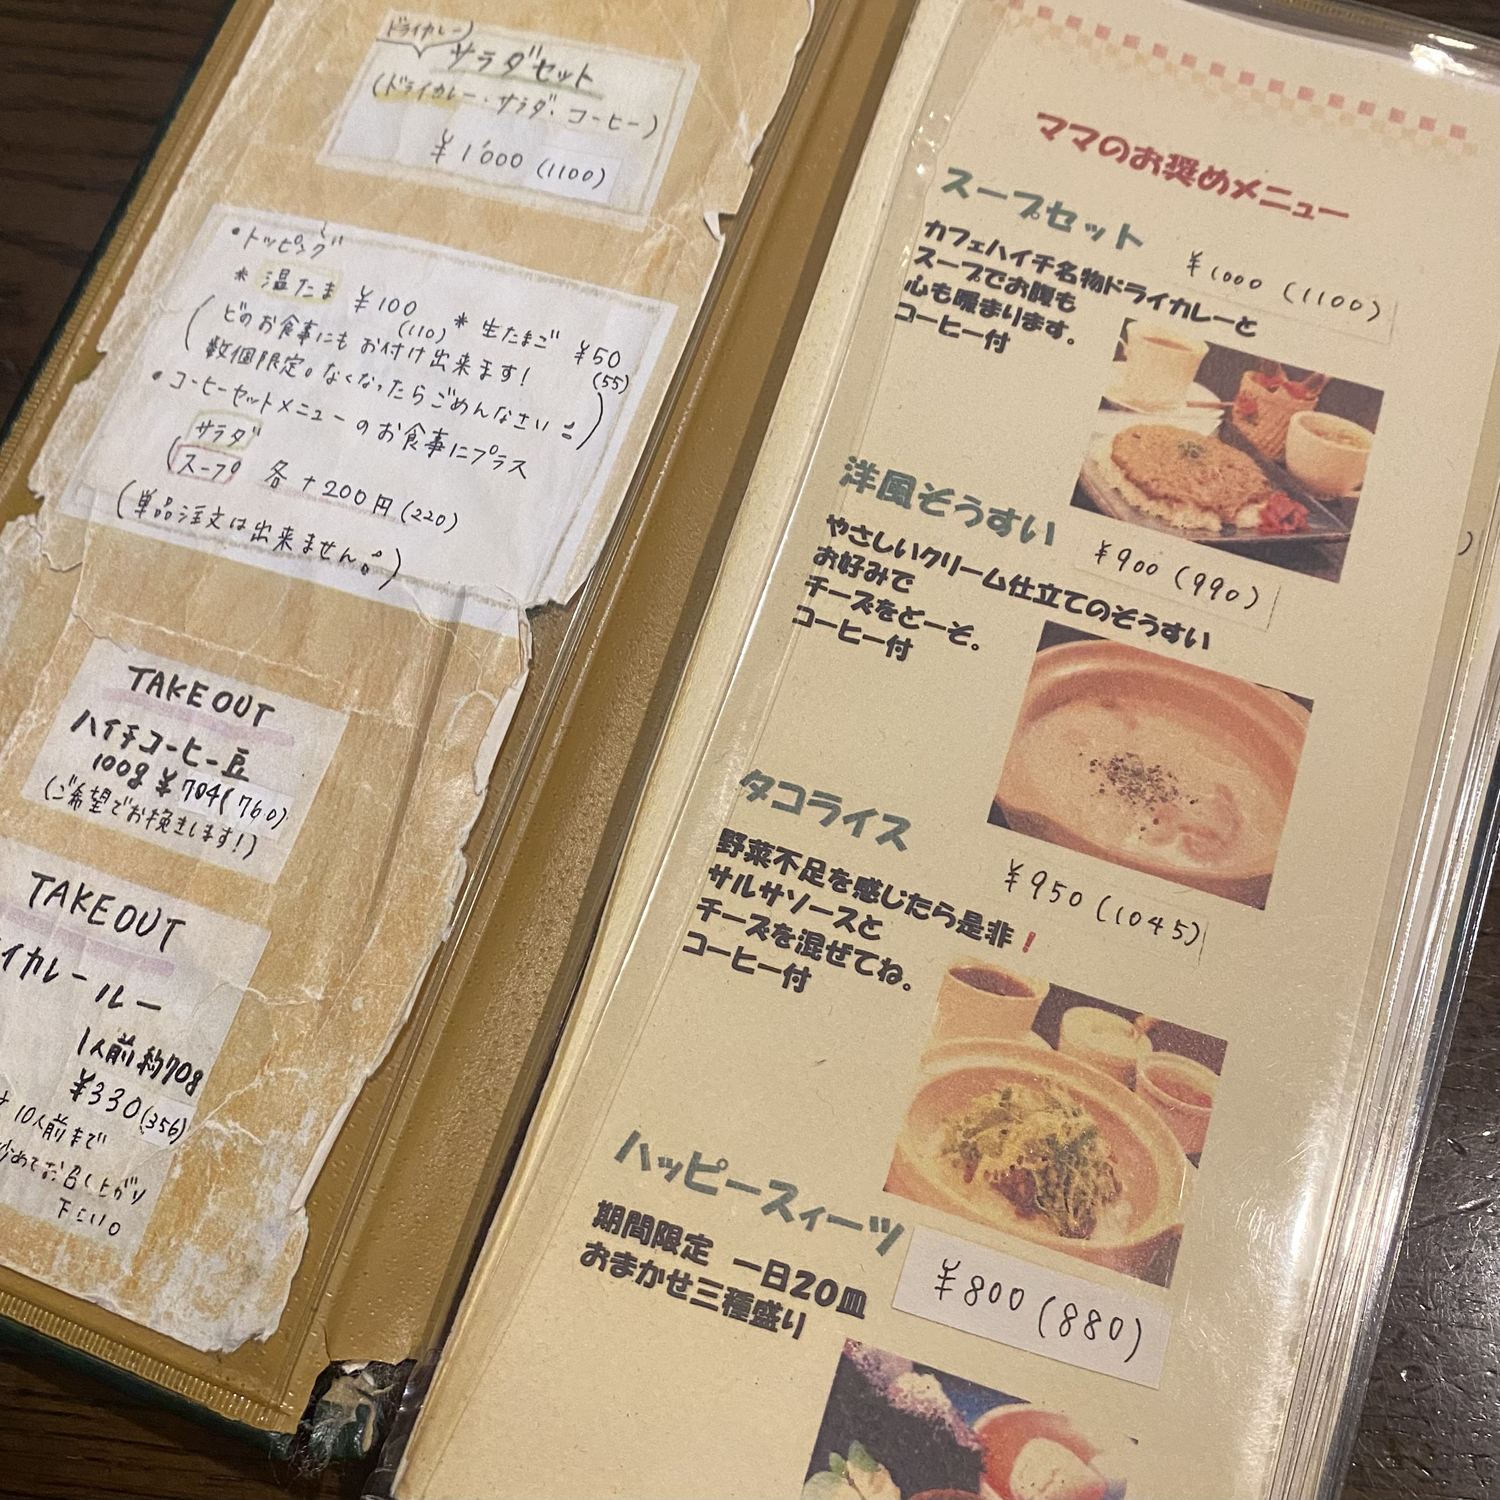 ドライカレー
サラダセット
(ドライカレー・サラダ・コーヒー)
¥1'000 (1100)
•トッピング
* 温たま ¥100 (110) * 生たまご ¥50 (55)
(どのお食事にもお付け出来ます!
数個限定。なくなったらごめんなさい)
•コーヒーセットメニューのお食事にプラス
サラダ
スープ 各+200円(220)
(単品注文は出来ません。)
TAKE OUT
ハイチコーヒー豆
100g ¥704(760)
(ご希望でお挽きします!)
TAKE OUT
イカレールー
1人前約70g
¥330(356)
10人前まで
炒めてお召し上がり
下さい。
ママのお奨めメニュー
スープセット
¥1000 (1100)
カフェハイチ名物ドライカレーと
スープでお腹も
心も暖まります。
コーヒー付
洋風ぞうすい
¥900 (990)
やさしいクリーム仕立てのぞうすい
お好みで
チーズをどーぞ。
コーヒー付
タコライス
¥950 (1045)
野菜不足を感じたら是非!
サルサソースと
チーズを混ぜてね。
コーヒー付
ハッピースィーツ
¥800 (880)
期間限定 一日20皿
おまかせ三種盛り